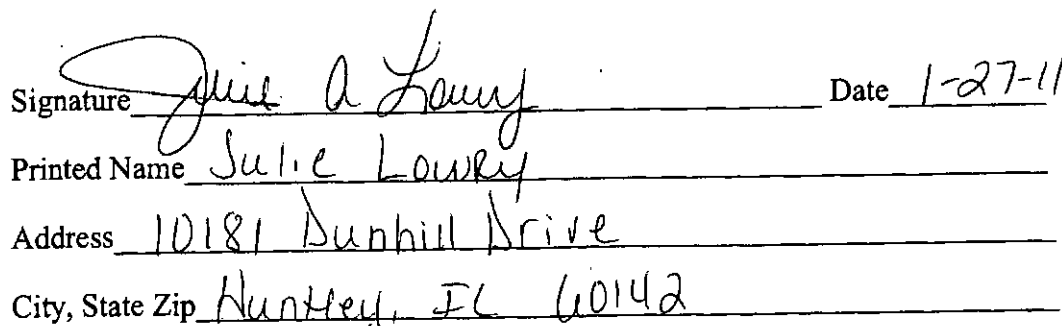 Signature Julie A Lowry Date 1-27-11
Printed Name Julie Lowry
Address 10181 Dunhill Drive
City, State Zip Huntley, IL 60142